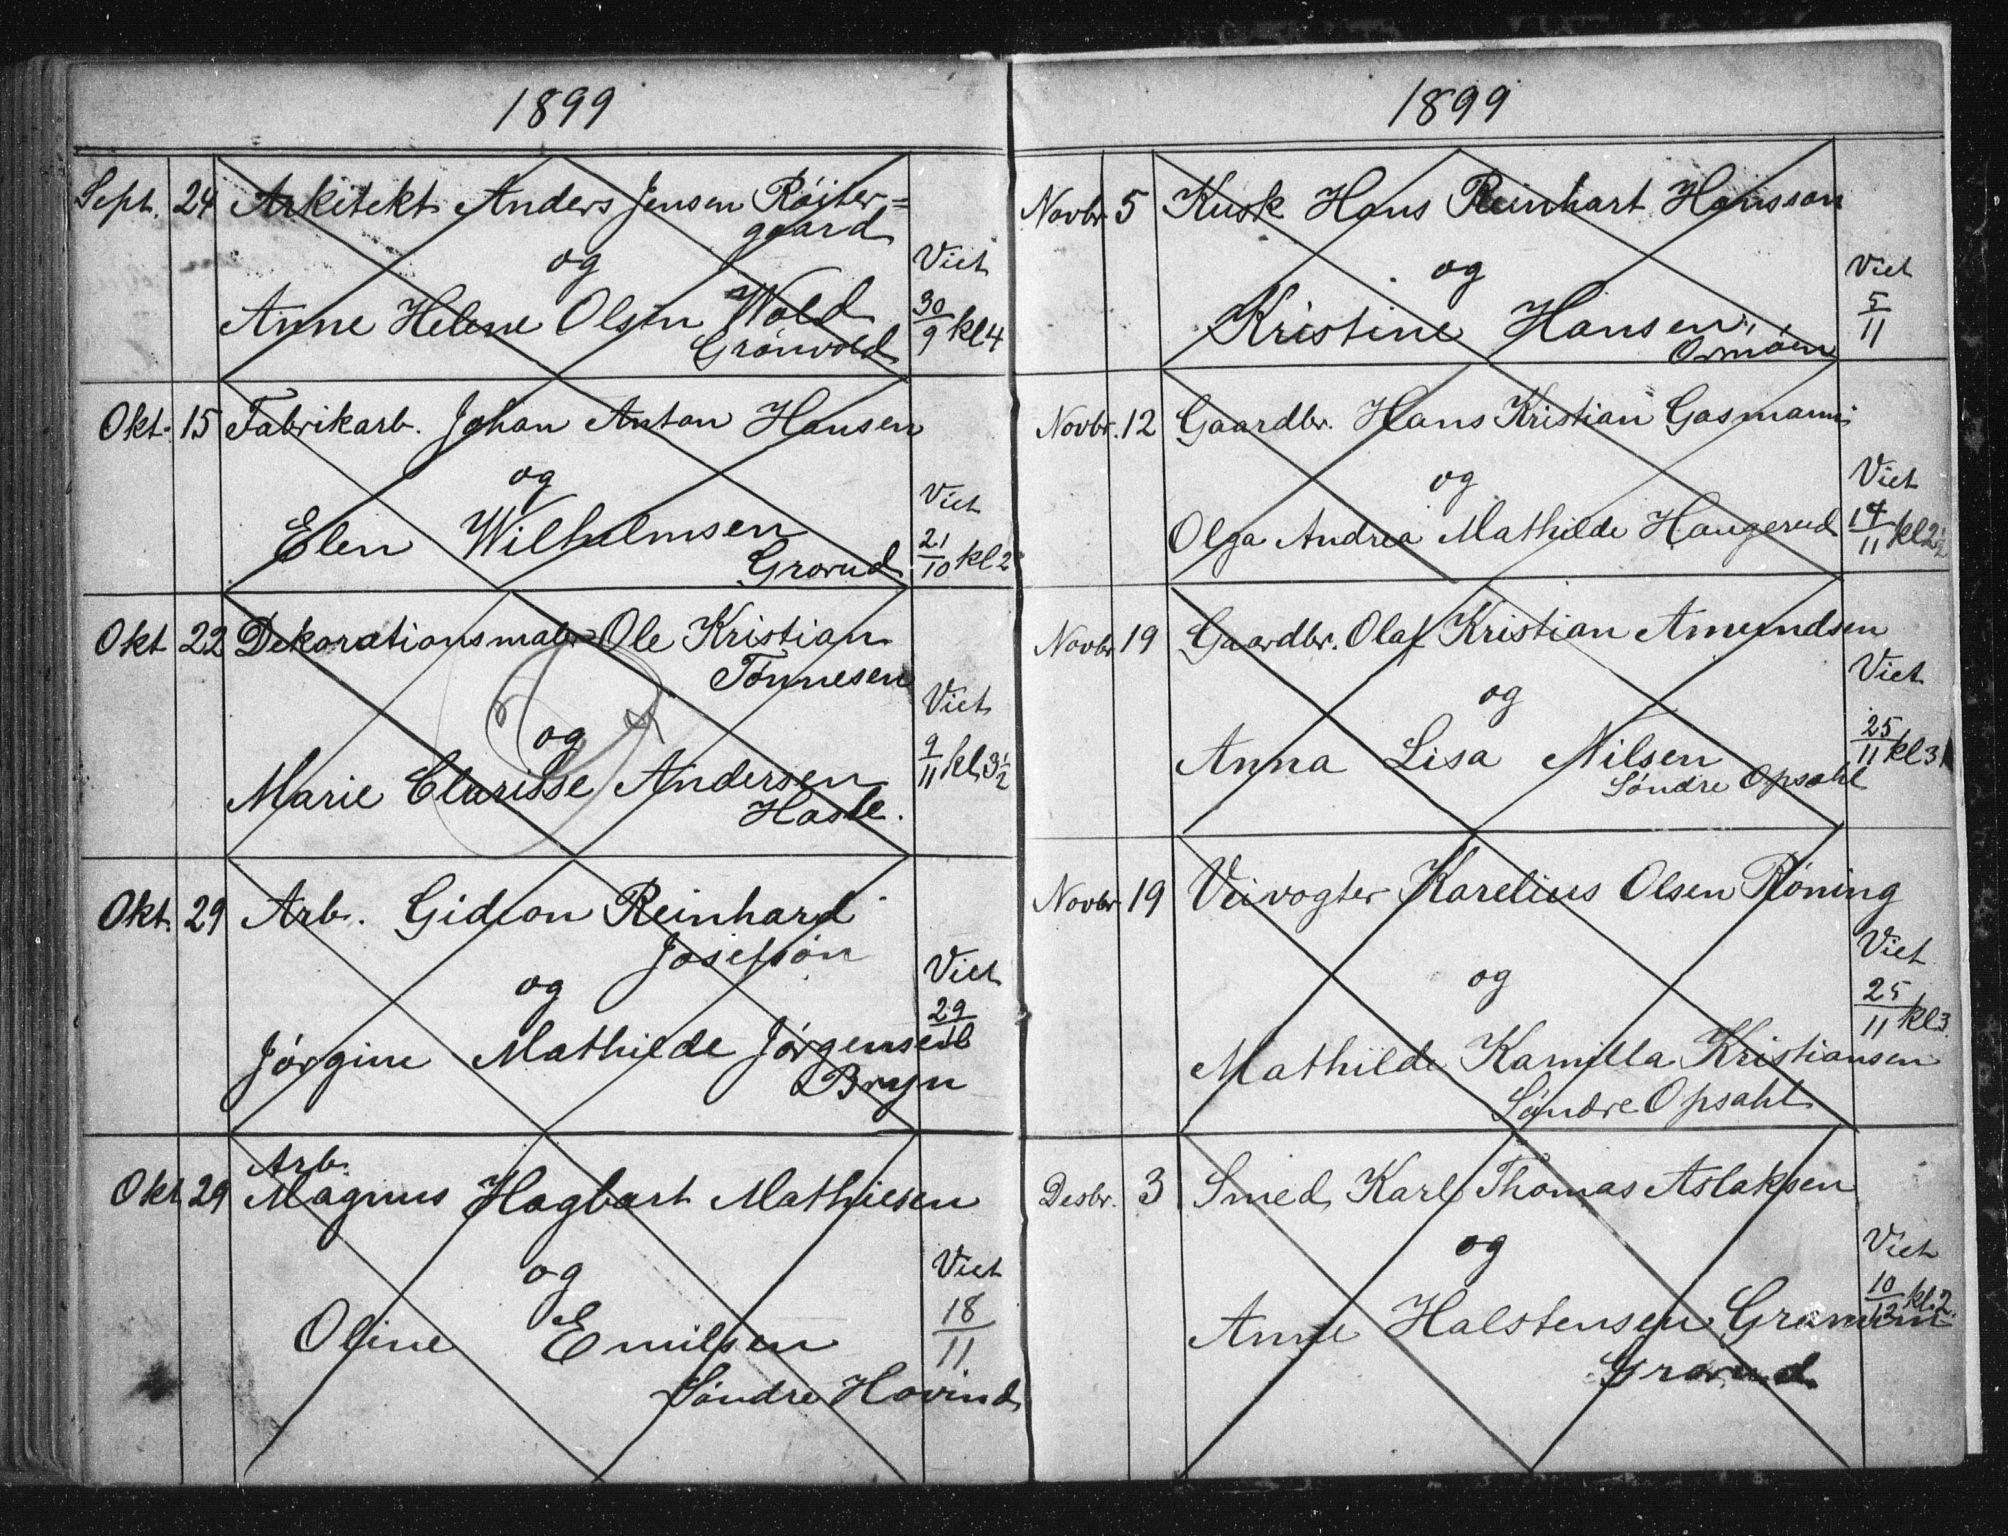 1899
Sept. 24 Arkitekt Anders Jensen Röiter=
gaard
og
Viet
Anne Helene Olsen Wold 30/9 kl 4
Grönvold
Okt. 15 Fabrikarb. Johan Anton Hansen
og
Viet
Elen Wilhelmsen 21/10 kl 2
Grorud
Okt 22 Dekorationsmaler Ole Kristian
Tönnesen
Viet
og
9/11 kl 3½
Marie Clarisse Andersen
Hasle.
Okt. 29 Arb. Gideon Reinhard
Josefsön
Viet
og
29/10
Jørgine Mathilde Jørgensen
Bryn
Arb.
Okt 29 Magnus Hagbart Mathiesen
og
Viet
18/11
Oline Emilsen
Söndre Hovind
1899
Novbr. 5 Kusk Hans Reinhart Hansson
og
Viet
5/11
Kristine Hansen,
Ormöen
Novbr. 12 Gaardbr. Hans Kristian Gasmann
og
Viet
Olga Andrea Mathilde Haugerud 14/11 kl 2½
Novbr. 19 Gaardbr. Olaf Kristian Amundsen
Viet
og
25/11 kl 3
Anna Lisa Nilsen
Söndre Opsahl
Novbr. 19 Veivogter Karelius Olsen Röning
Viet
og
25/11 kl 3
Mathilde Kamilla Kristiansen
Söndre Opsahl
Desbr. 3 Smed, Karl Thomas Aslaksen
og
Viet
10/12 kl. 2.
Anne Halstensen
Grorud